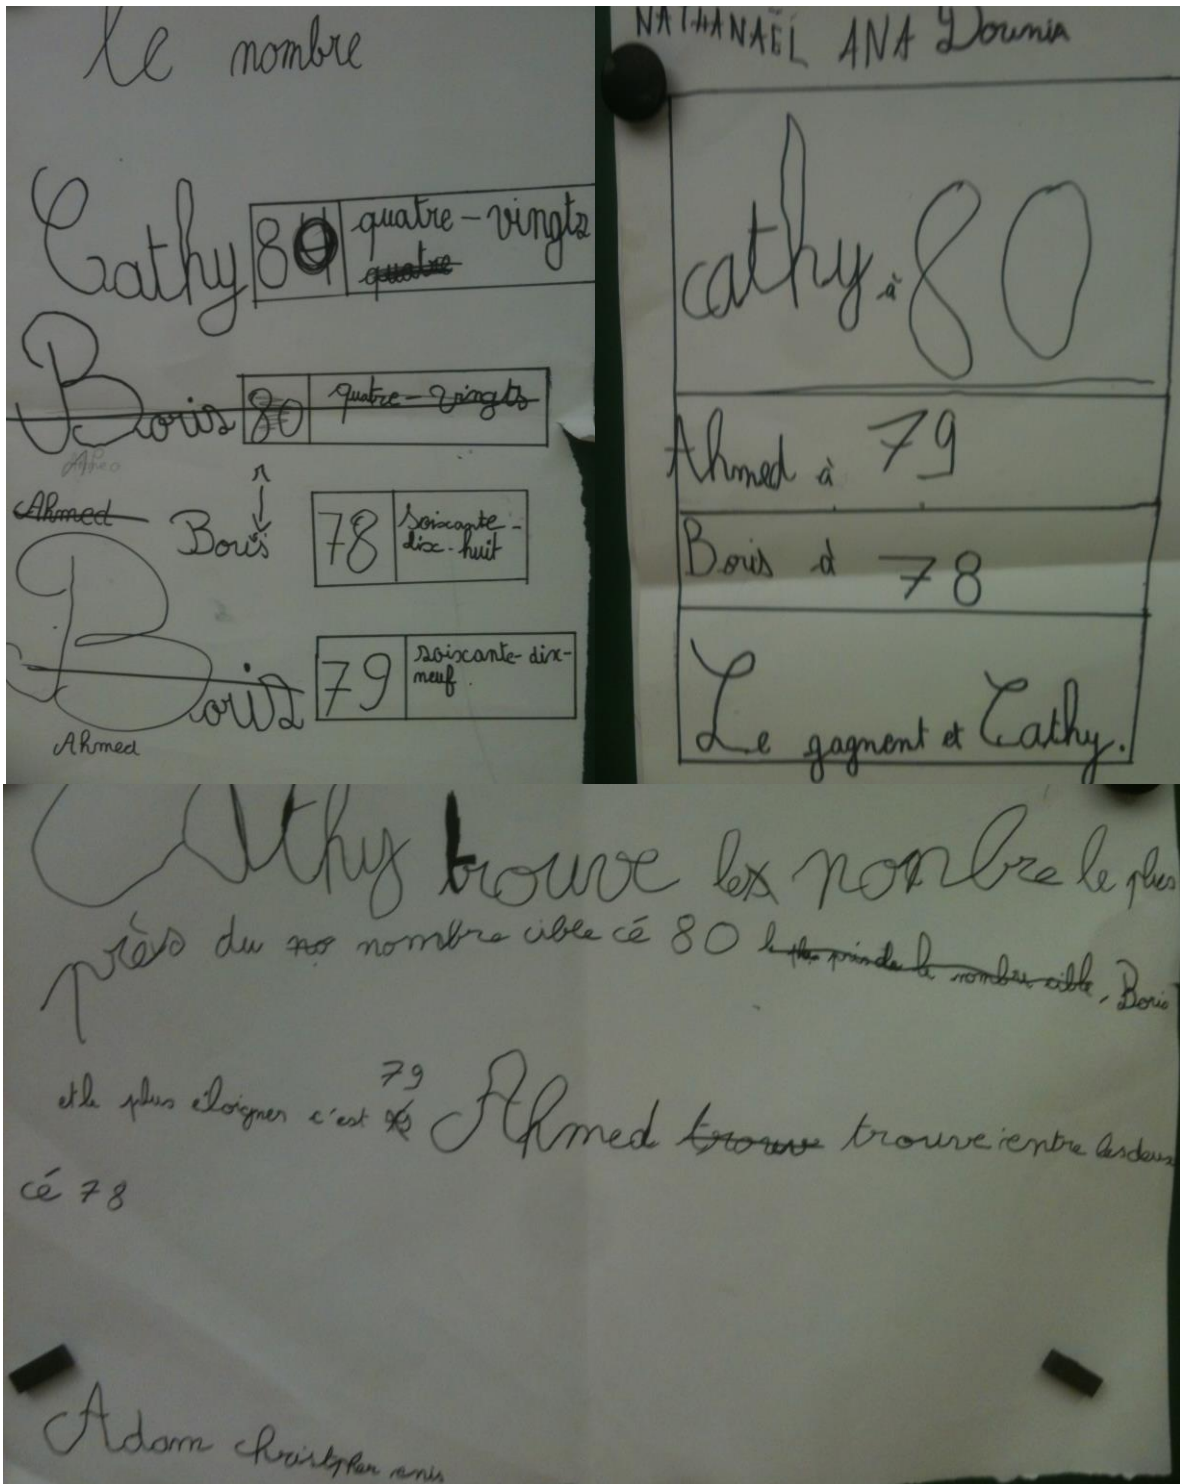 le nombre
Cathy 80 quatre-vingts
quatre
Boris 80 quatre-vingts
Ahmed
Ahmed Boris 78 soixante-
dix-huit
Boris 79 soixante-dix-
neuf.
Ahmed
NATHANAËL ANA Dounia
cathy à 80
Ahmed à 79
Boris à 78
Le gagnent et Cathy.
Cathy trouve les nonbre le plus
près du no nombre cible cé 80 le plus le nombre cible, Boris
79
et le plus éloigner c'est Ahmed trouve ientre les deux
cé 78
Adam Christpher anis